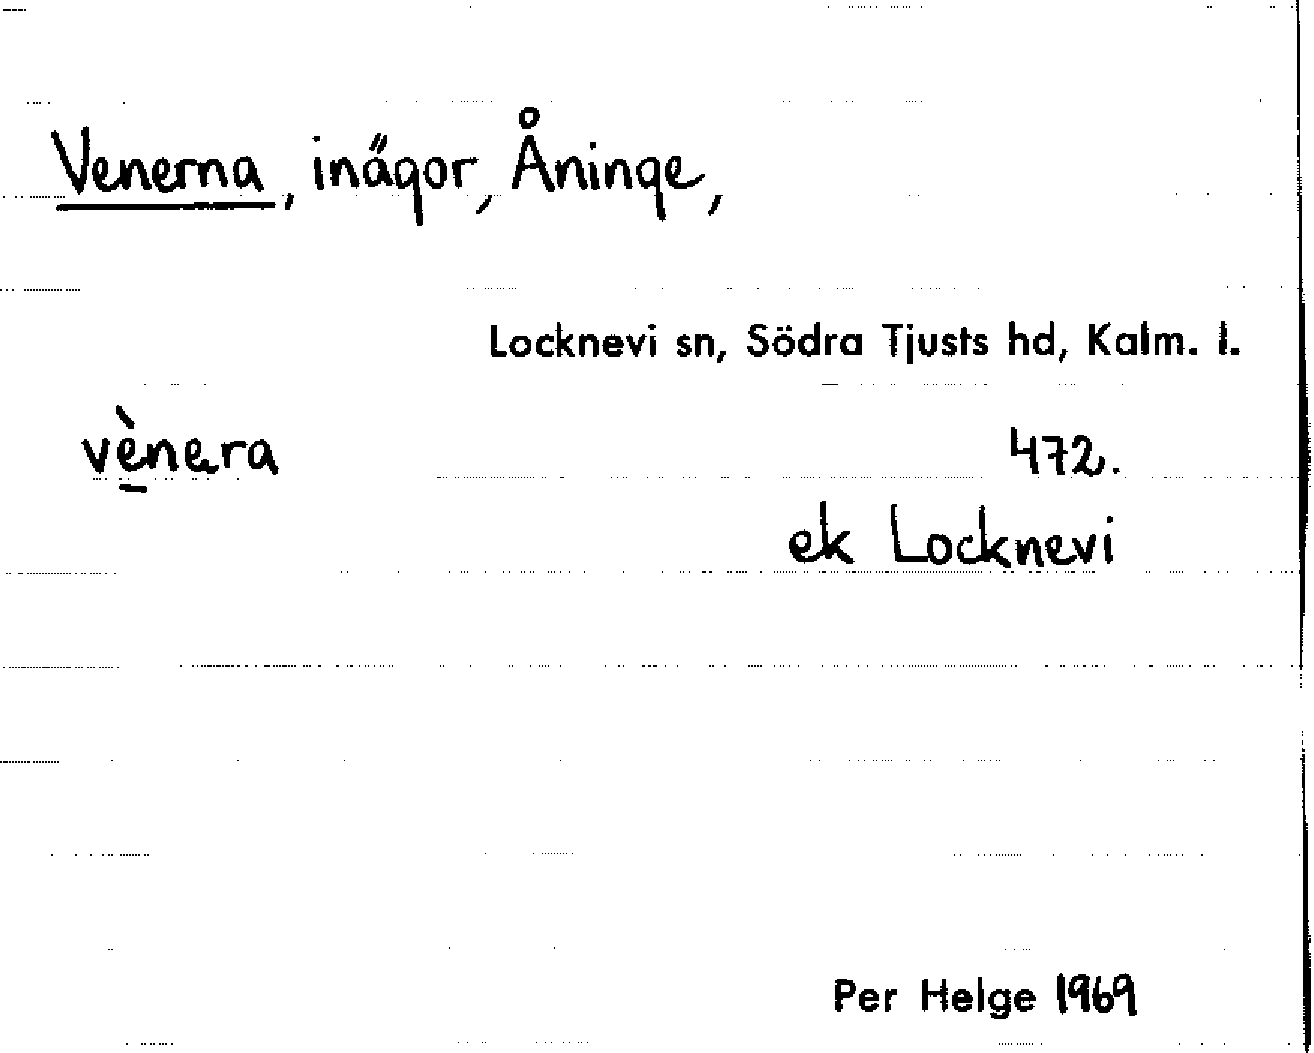 Venerna, inägor, Åninge,
Locknevi sn, Södra Tjusts hd, Kalm. l.
vè̱nera
472.
ek Locknevi
Per Helge 1969